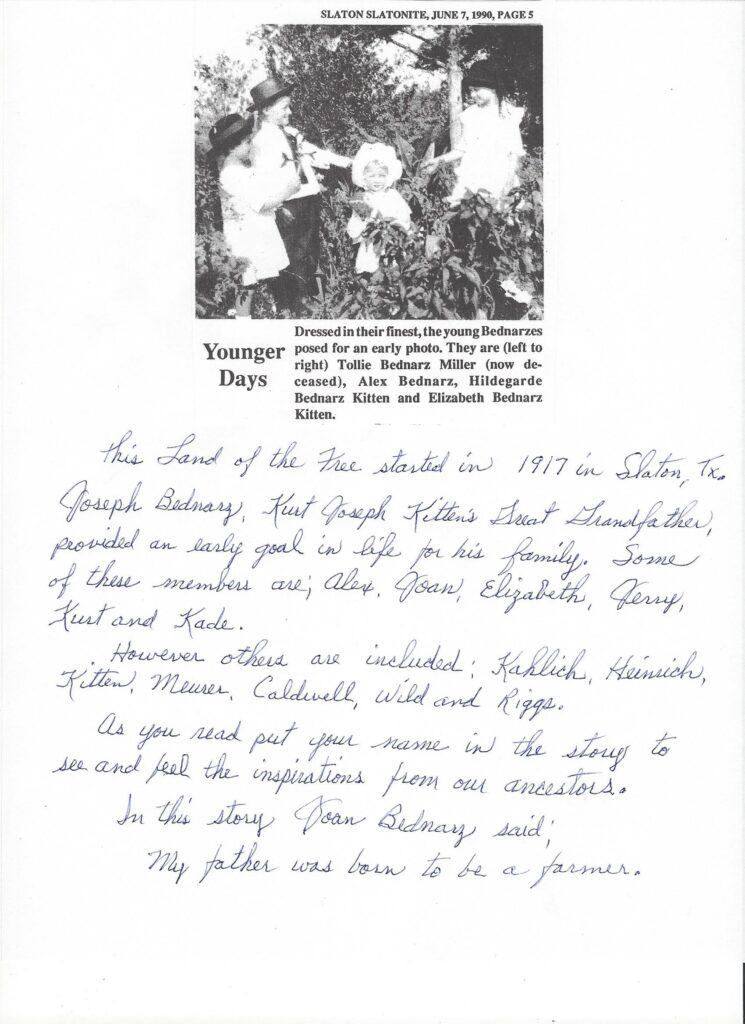 SLATON SLATONITE, JUNE 7, 1990, PAGE 5
Younger
Days
Dressed in their finest, the young Bednarzes
posed for an early photo. They are (left to
right) Tollie Bednarz Miller (now de-
ceased), Alex Bednarz, Hildegarde
Bednarz Kitten and Elizabeth Bednarz
Kitten.
This Land of the Free started in 1917 in Slaton, Tx.
Joseph Bednarz, Kurt Joseph Kitten's Great Grandfather,
provided an early goal in life for his family. Some
of these members are; Alex, Joan, Elizabeth, Jerry,
Kurt and Kade.
However others are included: Kahlich, Heinrich,
Kitten, Meurer, Caldwell, Wild and Riggs.
As you read put your name in the story to
see and feel the inspirations from our ancestors.
In this story Joan Bednarz said;
My father was born to be a farmer.